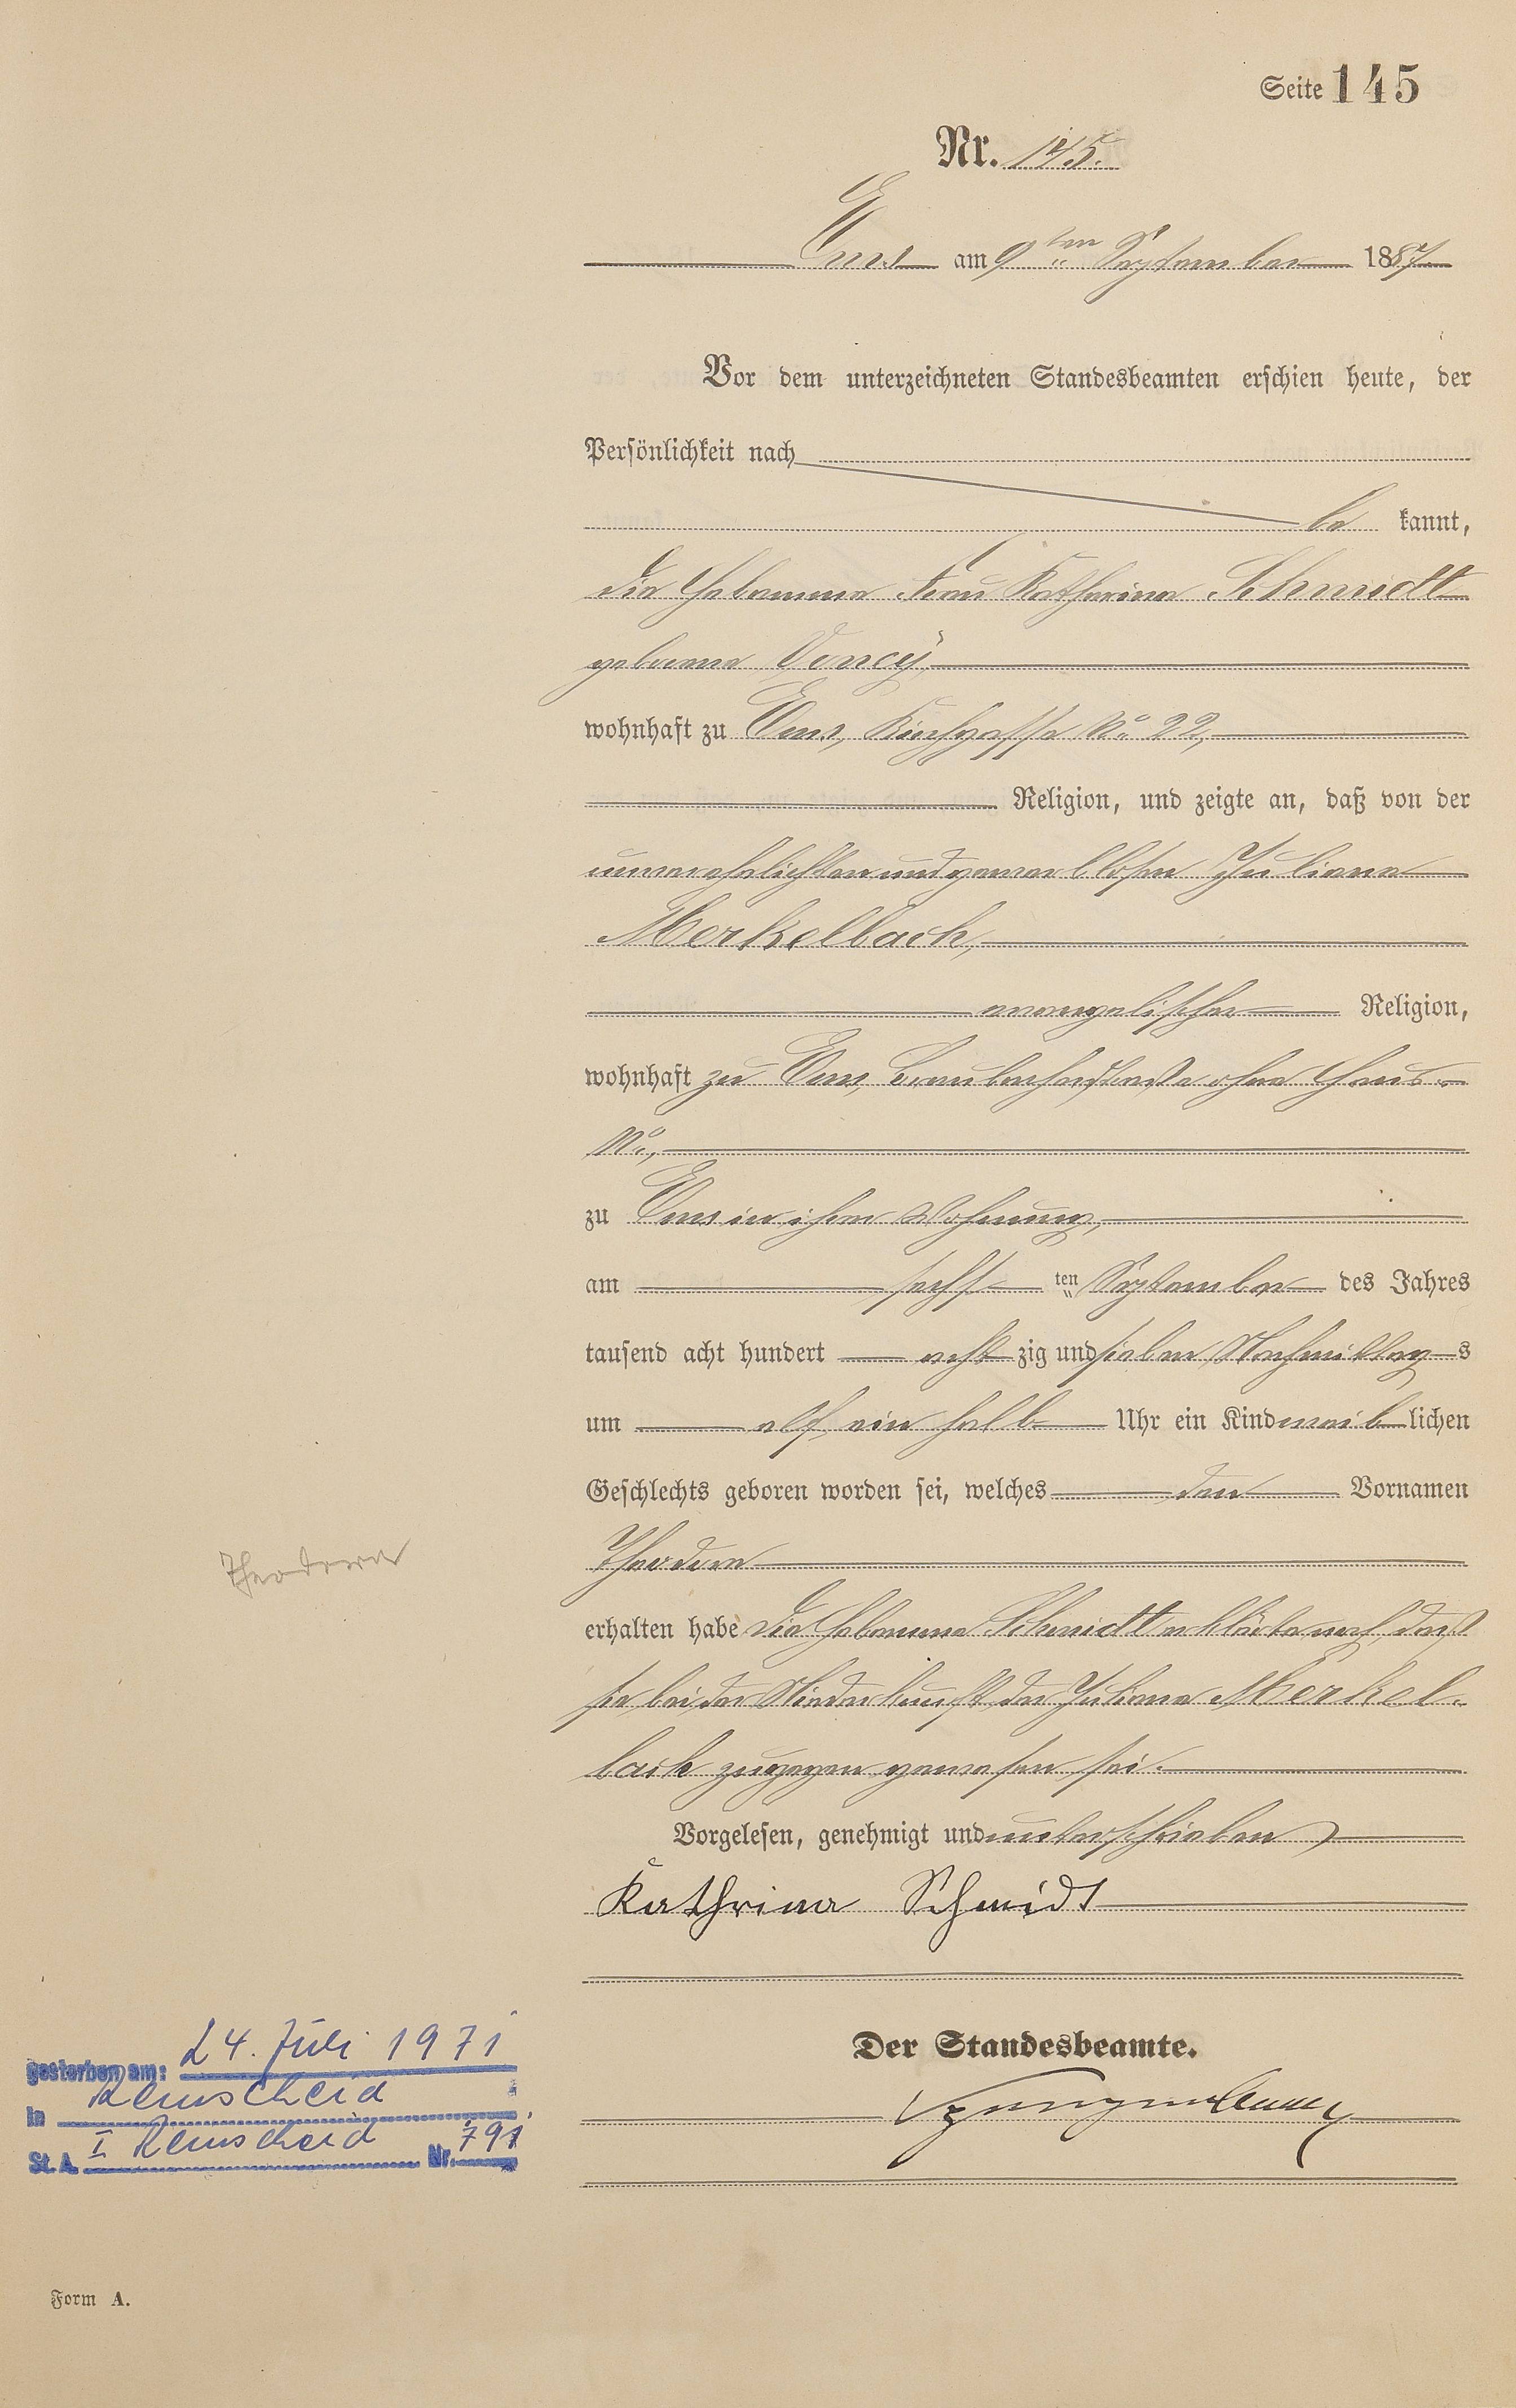 Seite 145
Nr. 145.
Ems am 9ten September 1887
Vor dem unterzeichneten Standesbeamten erschien heute, der
Persönlichkeit nach
be kannt,
die Hebamme Frau Katharina Schmidt
geborene
wohnhaft zu Ems, Kirchgasse No 22,
Religion, und zeigte an, daß von der
unverehelichten und gewerblosen Juliane
Merkelbach,
evangelischer Religion,
wohnhaft zu Ems, Braubacherstraße ohne Haus-
No,
zu Ems in ihrer Wohnung,
am sechs ten September des Jahres
tausend acht hundert acht zig und sieben Nachmittag s
um elf ein halb Uhr ein Kind weib lichen
Geschlechts geboren worden sei, welches den Vornamen
Theodora
Theodore
erhalten habe Die Hebamme Schmidt erklärte noch, daß
sie bei der Niederkunft der Juliane Merkel-
bach zugegen gewesen sei.
Vorgelesen, genehmigt und unterschrieben
Kathrina Schmidt
Der Standesbeamte.
gestorben am: 24. Juli 1971
in Remscheid
St. A. I Remscheid Nr. 791
Form A.